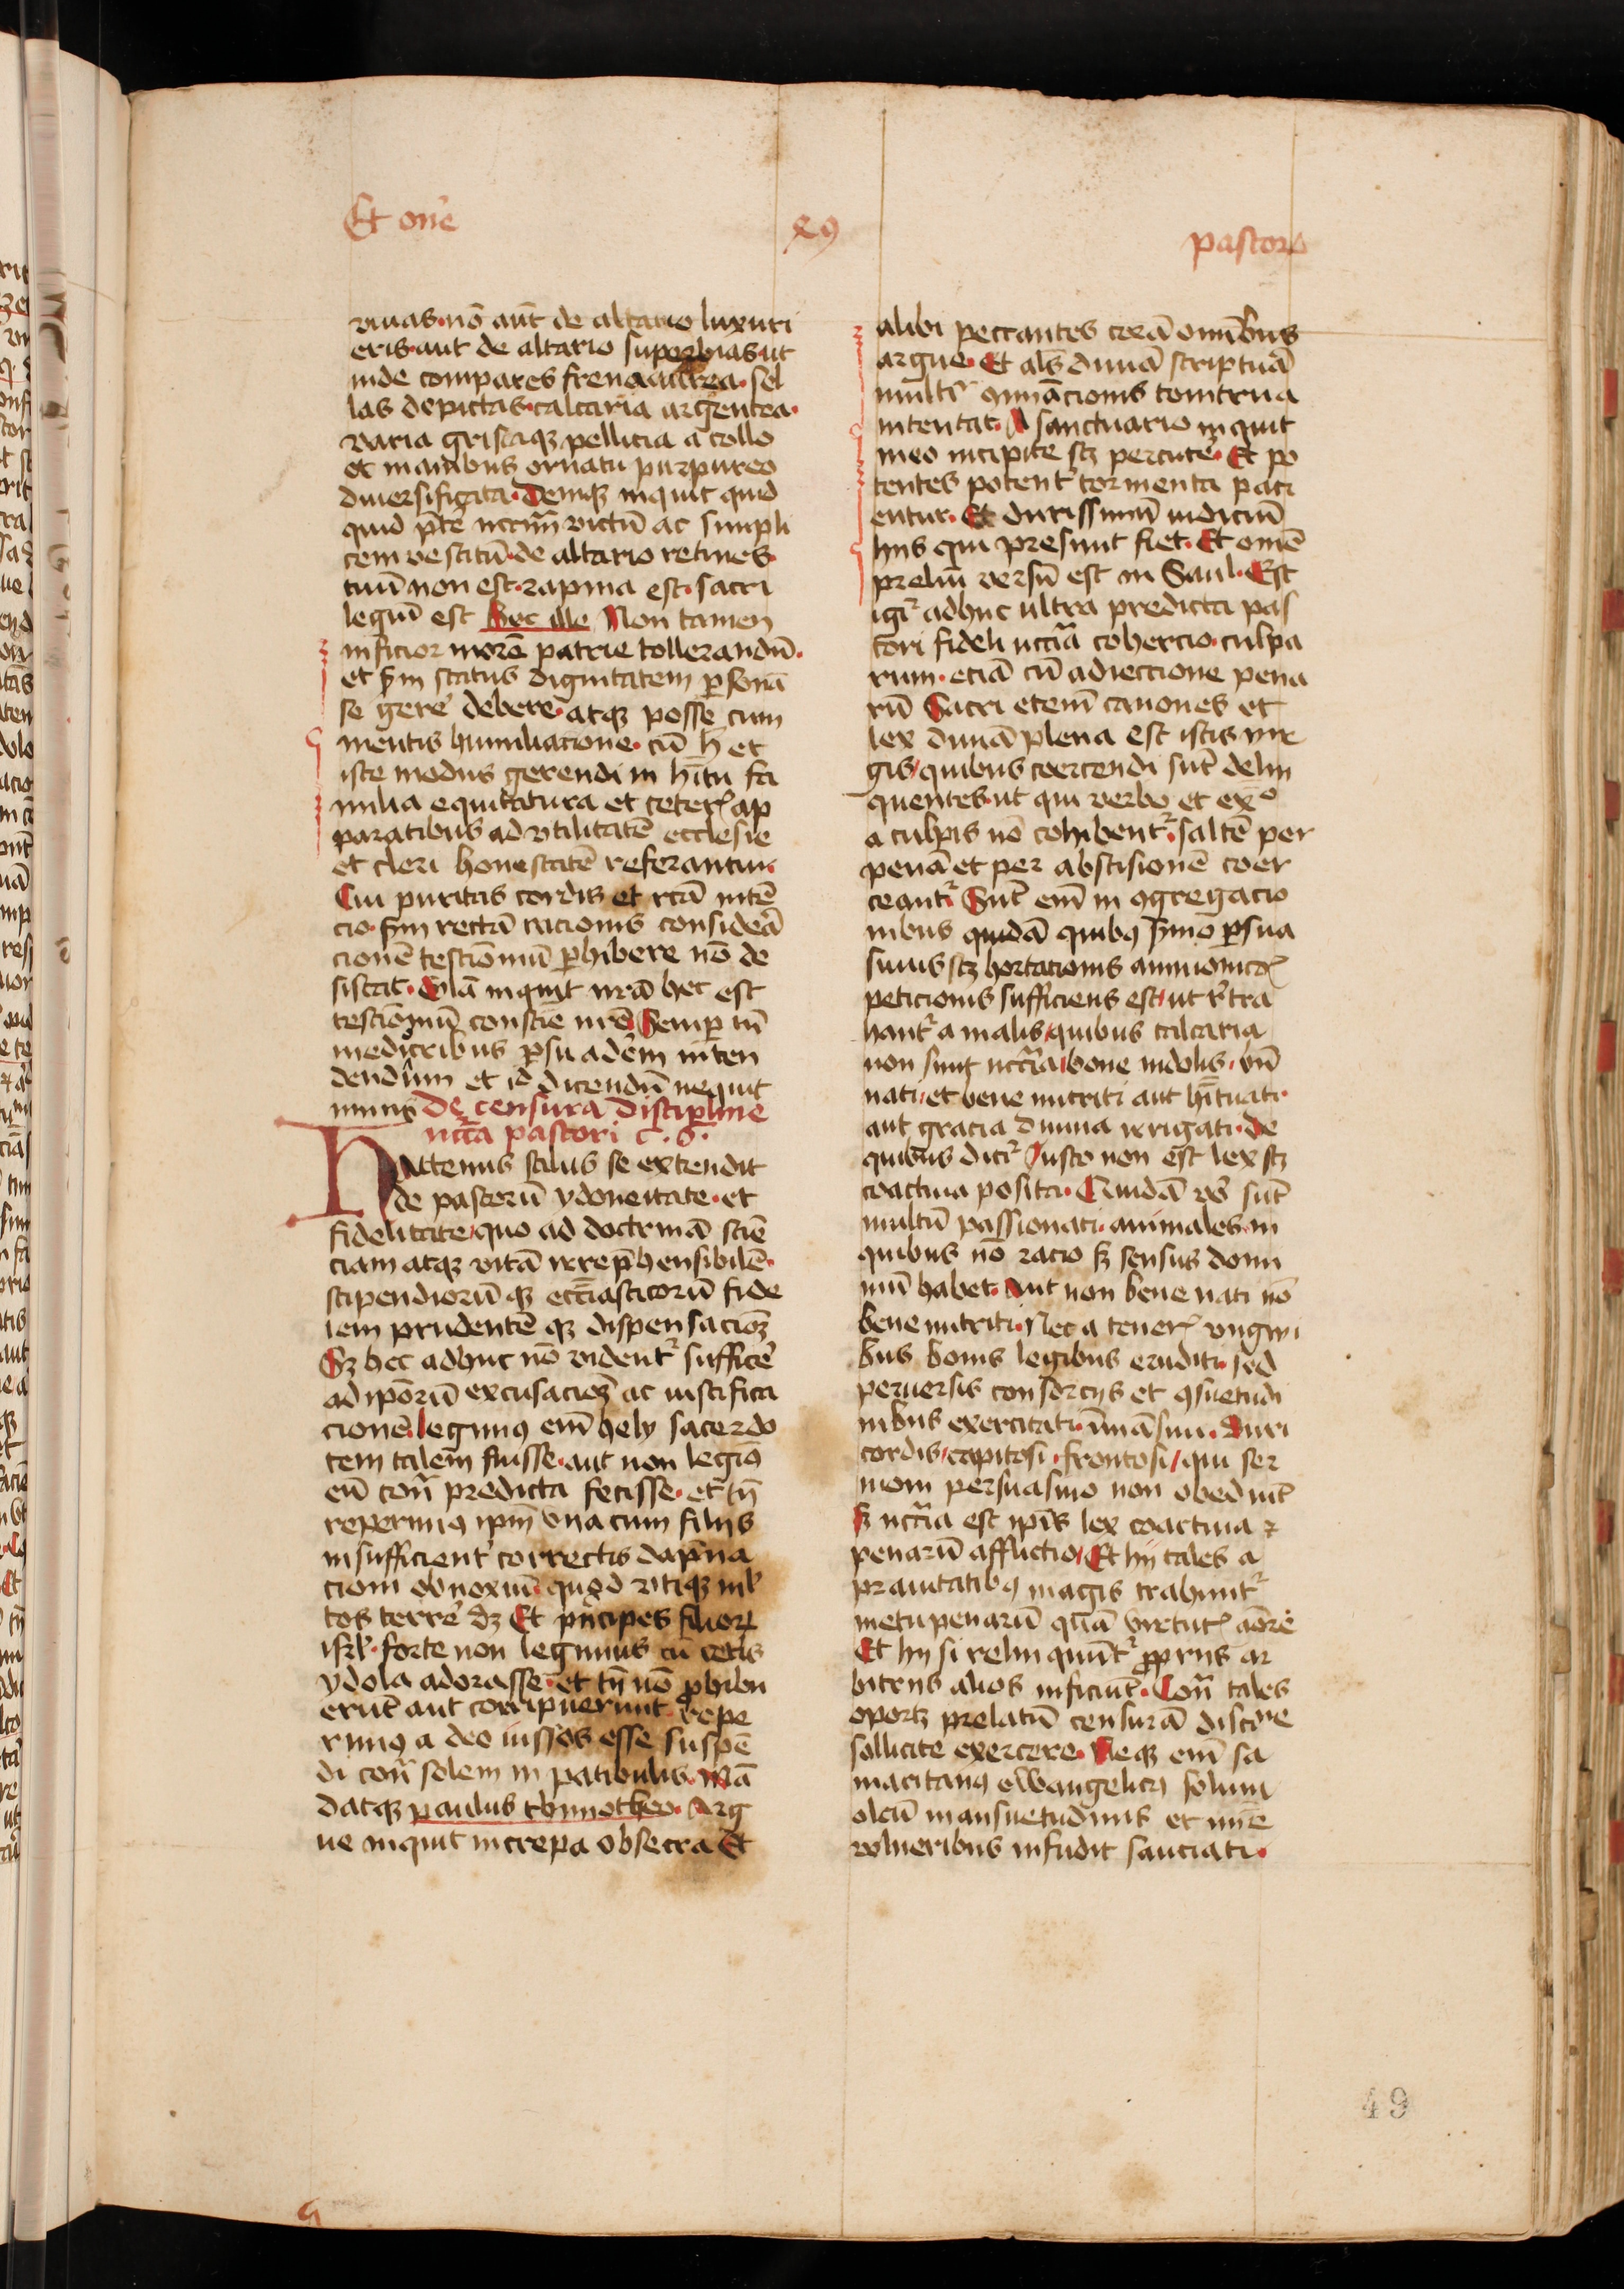 Et on̄e xꝯ pastorꝭ
viuas·nō aūt de altario luxuri
eris·aut de altario superbias·ut
inde compares frena aurea·sel
las depictas·calcaria argentea·
varia griseaqꝫ pellicia a collo
et manibus ornatu purpureo
diuersificata·Deniqꝫ inquit quid
quid p̄ter nccīū victū ac simpli
cem vestitū·de altario retines
tuū non est·rapina est·sacri
legiū est hec ille Non tamen
inficior morē patrie tollerandū·
et ẜm status dignitatem ꝑsonā
se gerē debere·atqꝫ posse cum
mentis humiliacione·cū h̄ et
iste modus gerendi in hītu fa
milia equitatura et ceterꝭ ap
paratibus ad vtilitatē ecclesie
et cleri honestatē referantur
Cui puritas cordis et rcā intē
cio·ẜm rectā racionis consideā
cionē testiōnuū ꝑhibere nō de
sistat·Glā inquit nr̄a hec est
testiōnuū conscīe nr̄e Semꝑ tn̄
mediocribus ꝑsuadēm inten
dendum et id dicendū nequit
minꝰ De censura discipline
nccā pastori c·6·
Hactenus stilus se extendit
de pastorū ydoneitate·et
fidelitate/quo ad doctrinā sciē
ciam atqꝫ vitā irrep̄hensibilē·
stipendiorū qꝫ eccīasticorū fide
lem prudentē qꝫ dispensacioꝫ
Sꝫ hec adhuc nō vident᷑ sufficē
ad ip̄orū excusacioꝫ ac iustifica
cionē·legimꝰ em̄ hely sacerdo
tem talem fuisse·aut non legiꝰ
eū cont̄ predicta fecisse·et tn̄
reperimꝰ ip̄m vna cum filijs
insufficient᷑ correctis dāpna
cioni obnoxiū·quod vtiqꝫ ml̄
tos terrē dꝫ Et pn̄cipes filioꝝ
isrl̄·forte non legimus cū cetis
ydola adorasse·et tn̄ nō ꝓhibu
erūt aut corripuerunt·repe
rimꝰ a deo iussos esse suspē
di cont̄ solem in patibulis·Mā
datqꝫ paulus thimotheo·Arg
ue inquit increpa obsecra Et
alibi peccantes corā omībus
argue·Et als diuinā scripturā
mult᷑ ꝯminācionis tonitrua
intentat·A sanctuario inquit
meo incipite scꝫ percutē·Et po
tentes potent᷑ tormenta paci
entur·Et durissimū iudiciū
hijs qui presunt fiet·Et omē
preliū versū est in Saul·Est
igi᷑ adhuc ultra predicta pas
tori fideli nccīa cohercio·culpa
rum·etiā cū adiectione pena
rū Sacri etem̄ canones et
lex diuinā plena est istis vir
gis/quibus coercendi sūt delin
quentes·ut qui verbo et exº
a culpis nō cohibent᷑·saltē per
penā et per abscisionē coer
ceant᷑ Sūt em̄ in ꝯgregacio
nibus quidā quibꝰ ẜmo ꝑsua
siuus scꝫ hortacionis ammonicꝭ
peticionis sufficiens est/ut r̄tra
hant᷑ a malis/quibus calcaria
non sunt nccīa/bone indolis·bn̄
nati·et bene nutriti aut hītuati·
aut gracia diuina irrigati·de
quibus dici᷑ Iusto non est lex scꝫ
coactiua posita·Quidā vō sūt
multū passionati·animales·in
quibus nō racio sꝫ sensus domi
niū habet·Aut non bene nati nō
bene nutriti·Nec a tenerꝭ vngwi
bus bonis legibus eruditi·sed
peruersis consorcijs et ꝯsuetudi
nibus exercitati·īmāsui·Duri
cordis/capitosi·frontosi/qui ser
moni persuasiuo non obediūt
sꝫ nccīa est ip̄is lex coactiua ⁊
penarū afflictio/Et hij tales a
prauitatibꝰ magis trahunt᷑
metu penarū quā virtutꝭ aōre
Et hij si relinquūt᷑ ꝓprijs ar
bitrijs alios inficiūt·Cont̄ tales
oportꝫ prelatū censurā discīne
sollicite exercere·Neqꝫ em̄ sa
maritanꝰ ewangelicꝰ solum
oleū mansuetudinis et mīe
vulneribus infudit sauciati·
49